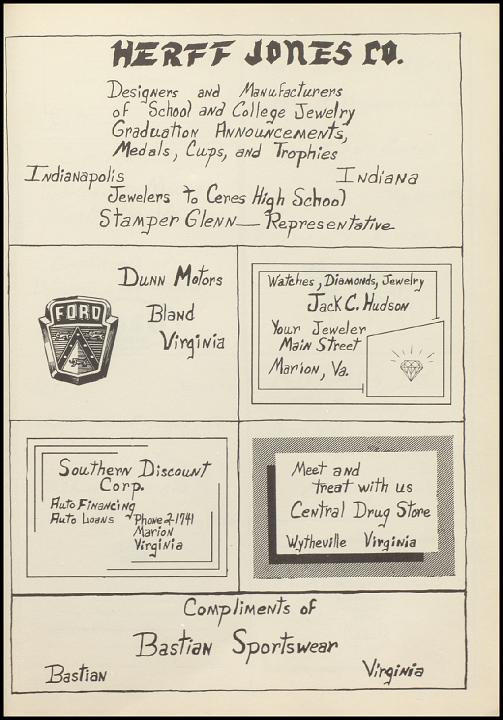 HERFF JONES CO.
Designers and Manufacturers
of School and College Jewelry
Graduation Announcements,
Medals, Cups, and Trophies
Indianapolis Indiana
Jewelers to Ceres High School
Stamper Glenn — Representative
Dunn Motors
FORD
Bland
Virginia
Watches, Diamonds, Jewelry
Jack C. Hudson
Your Jeweler
Main Street
Marion, Va.
Southern Discount
Corp.
Auto Financing
Auto Loans Phone 2-1741
Marion
Virginia
Meet and
treat with us
Central Drug Store
Wytheville Virginia
Compliments of
Bastian Sportswear
Bastian Virginia